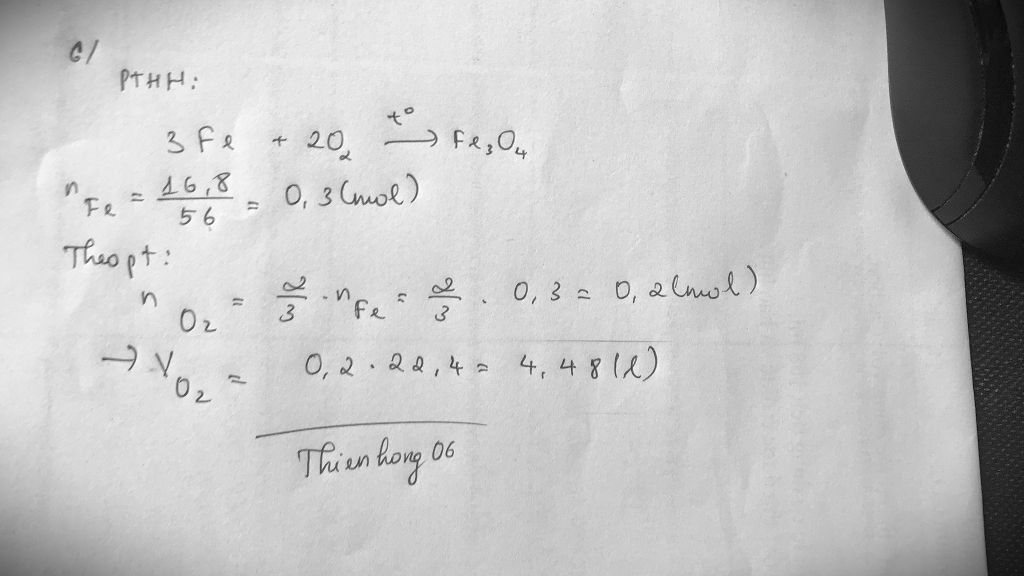 6/
PTHH:
3 Fe + 2O₂ →(t°) Fe₃O₄
n Fe = 16,8/56 = 0,3 (mol)
Theo pt:
n O₂ = 2/3 . n Fe = 2/3 . 0,3 = 0,2 (mol)
→ V O₂ = 0,2 . 22,4 = 4,48 (l)
Thienhong 06